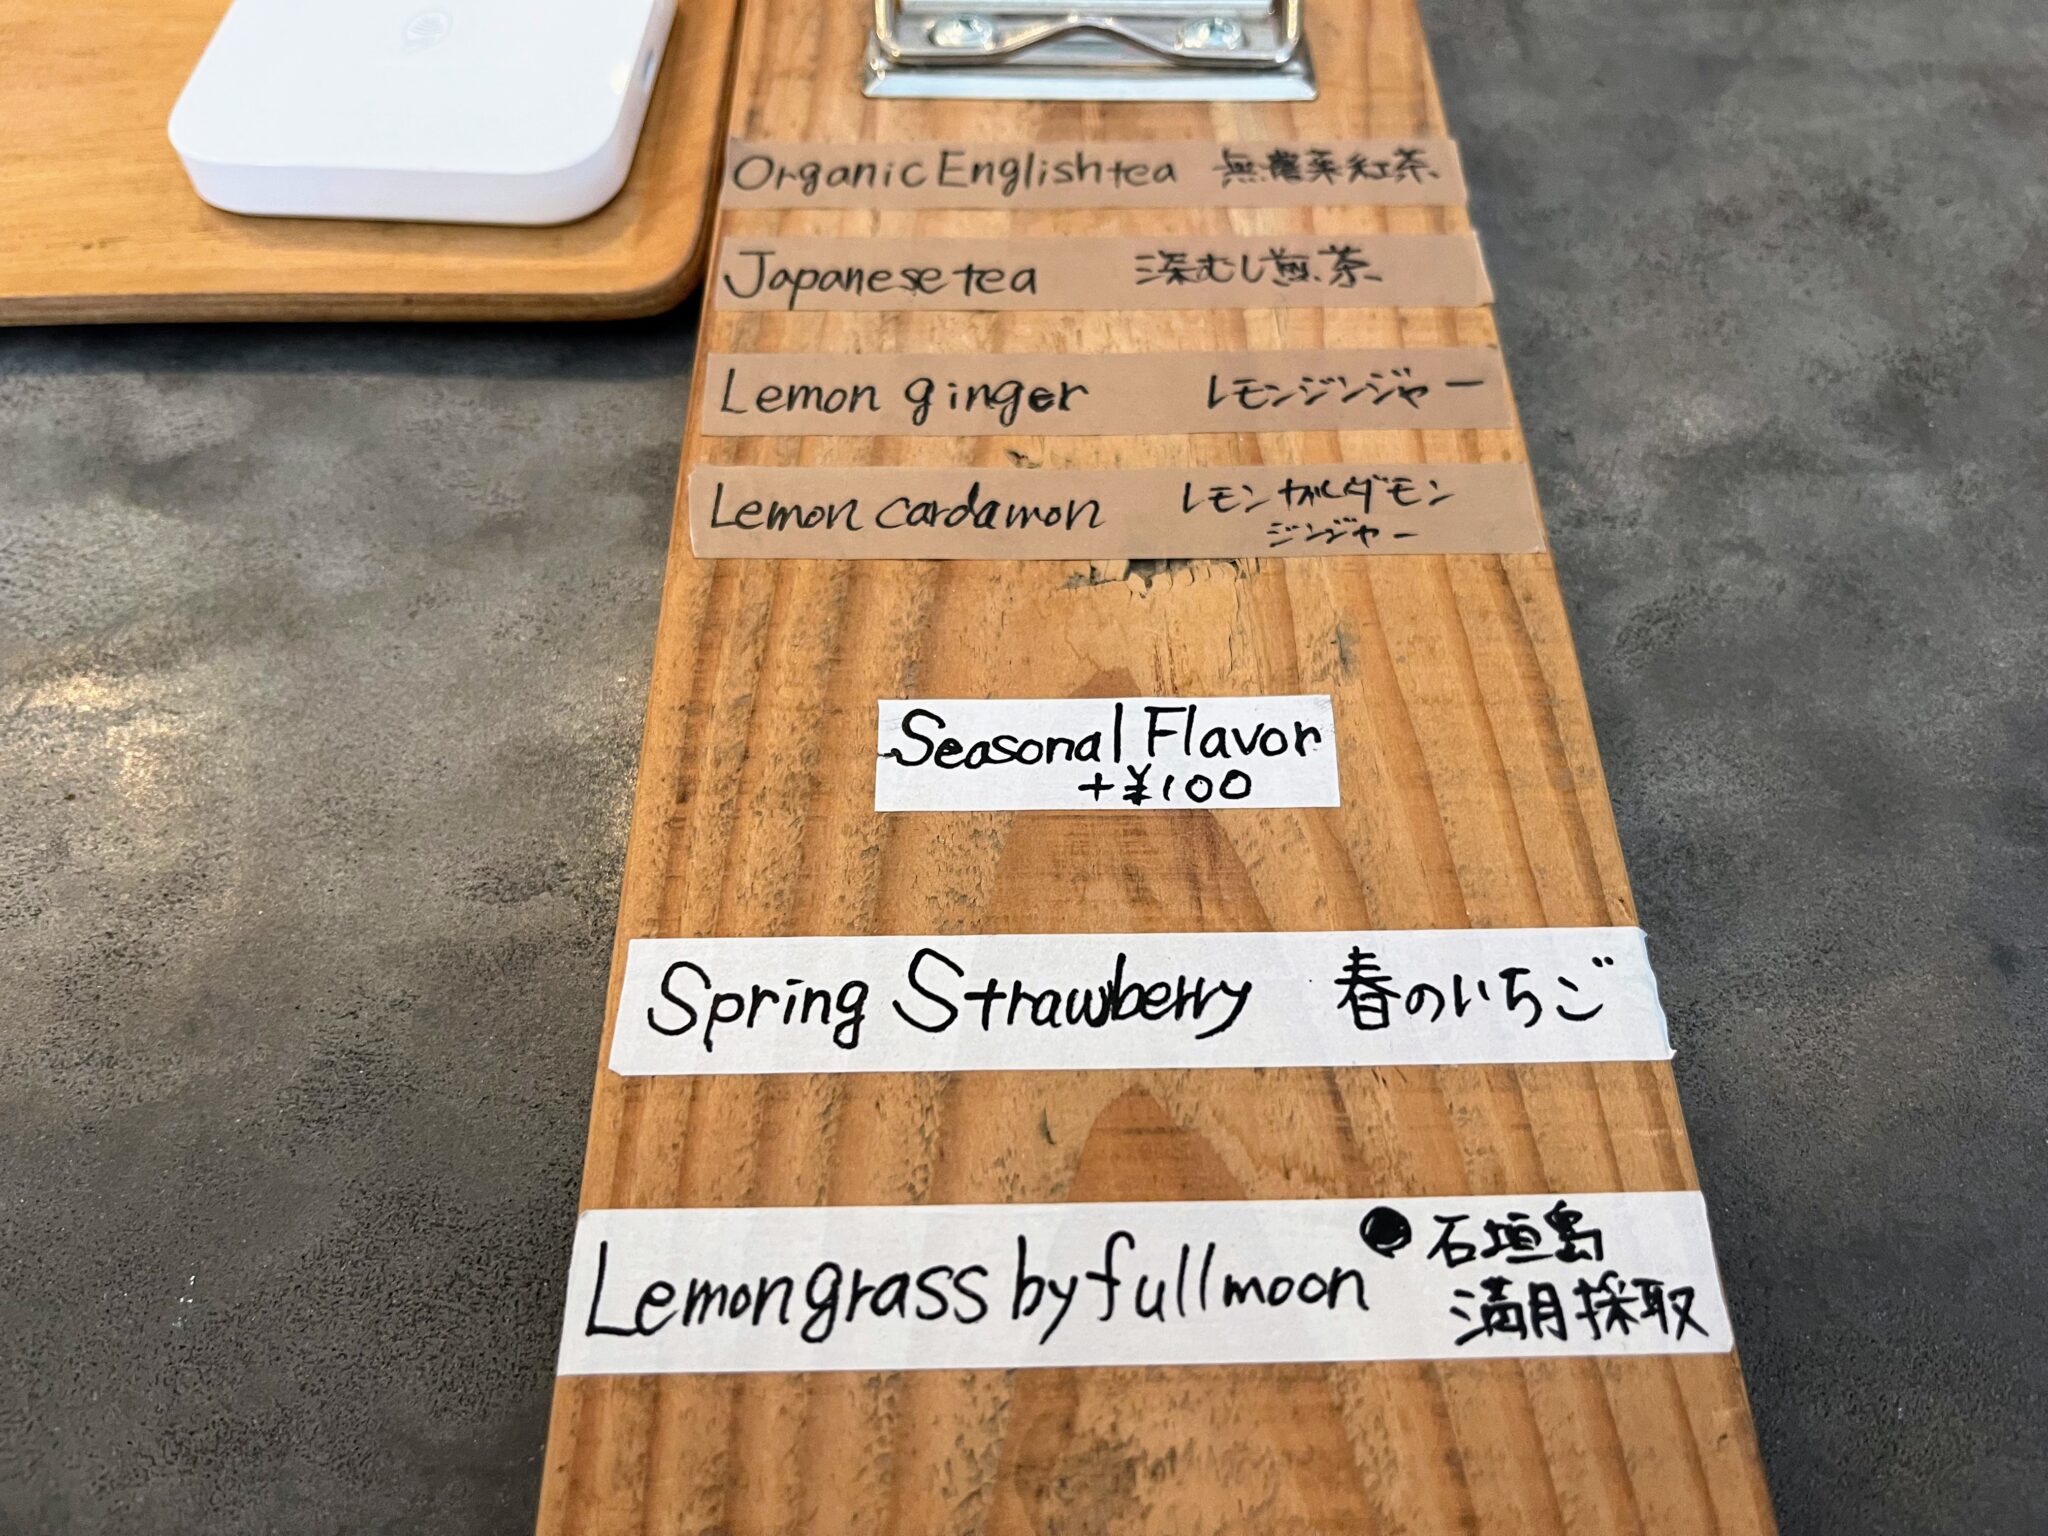 Organic English tea 無農薬紅茶
Japanese tea 深むし煎茶
Lemon ginger レモンジンジャー
Lemon cardamon レモンカルダモン
ジンジャー
Seasonal Flavor
+¥100
Spring Strawberry 春のいちご
Lemongrass by fullmoon ● 石垣島
満月採取